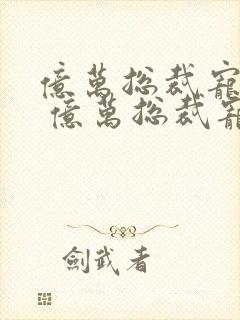 億萬總裁寵
億萬總裁寵
劍武者